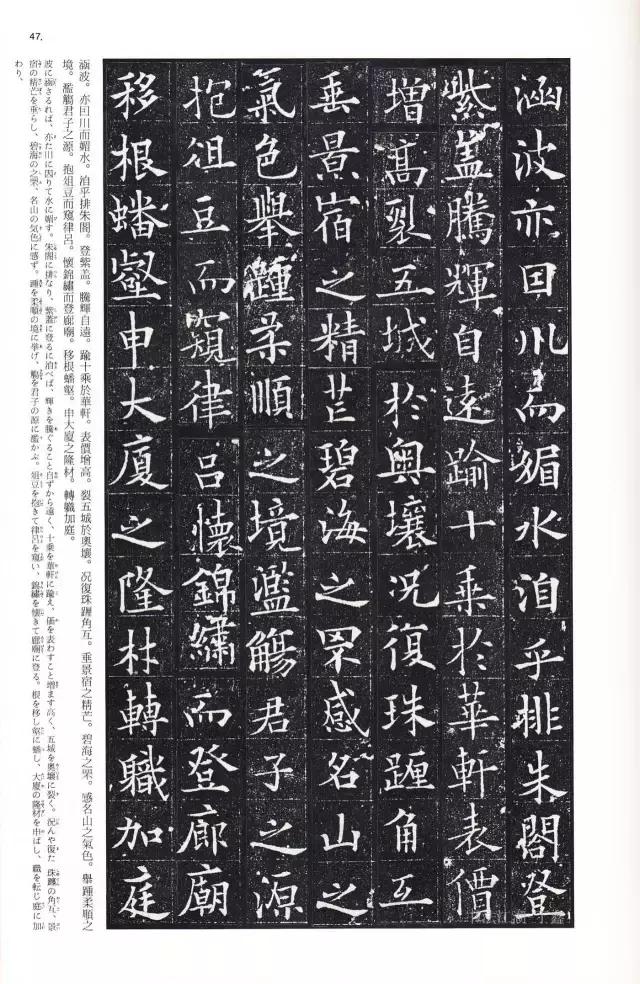 47.
涵波亦囙川而媚水洎乎排朱閣登
紫盖騰輝自遠踰十乘於華軒表價
增高裂五城於奥壤况復珠躔角亙
垂景宿之精芒碧海之罘感名山之
氣色舉踵柔順之境濫觴君子之源
抱俎豆而窺律呂懷錦繡而登廊廟
移根蟠壑申大廈之隆材轉職加庭
涵波。亦囙川而媚水。洎乎排朱閣。登紫盖。騰輝自遠。踰十乘於華軒。表價增高。裂五城於奥壤。况復珠躔角亙。垂景宿之精芒。碧海之罘。感名山之氣色。舉踵柔順之
境。濫觴君子之源。抱俎豆而窺律呂。懷錦繡而登廊廟。移根蟠壑。申大廈之隆材。轉職加庭。
波に涵さるれば、亦た川に因りて水に媚す。朱閣に排なり、紫蓋に登るに洎べば、輝きを騰ぐること自ずから遠く、十乘を華軒に踰え、価を表わすこと増ます高く、五城を奥壤に裂く。況んや復た 珠躔の角亙、景
宿の精芒を垂らし、碧海の之罘、名山の気色に感ず。踵を柔順の境に挙げ、觴を君子の源に濫かぶ。俎豆を抱きて律呂を窺い、錦繡を懐きて廊廟に登る。根を移し壑に蟠し、大廈の隆材を申ばし、職を転じ庭に加
わり、